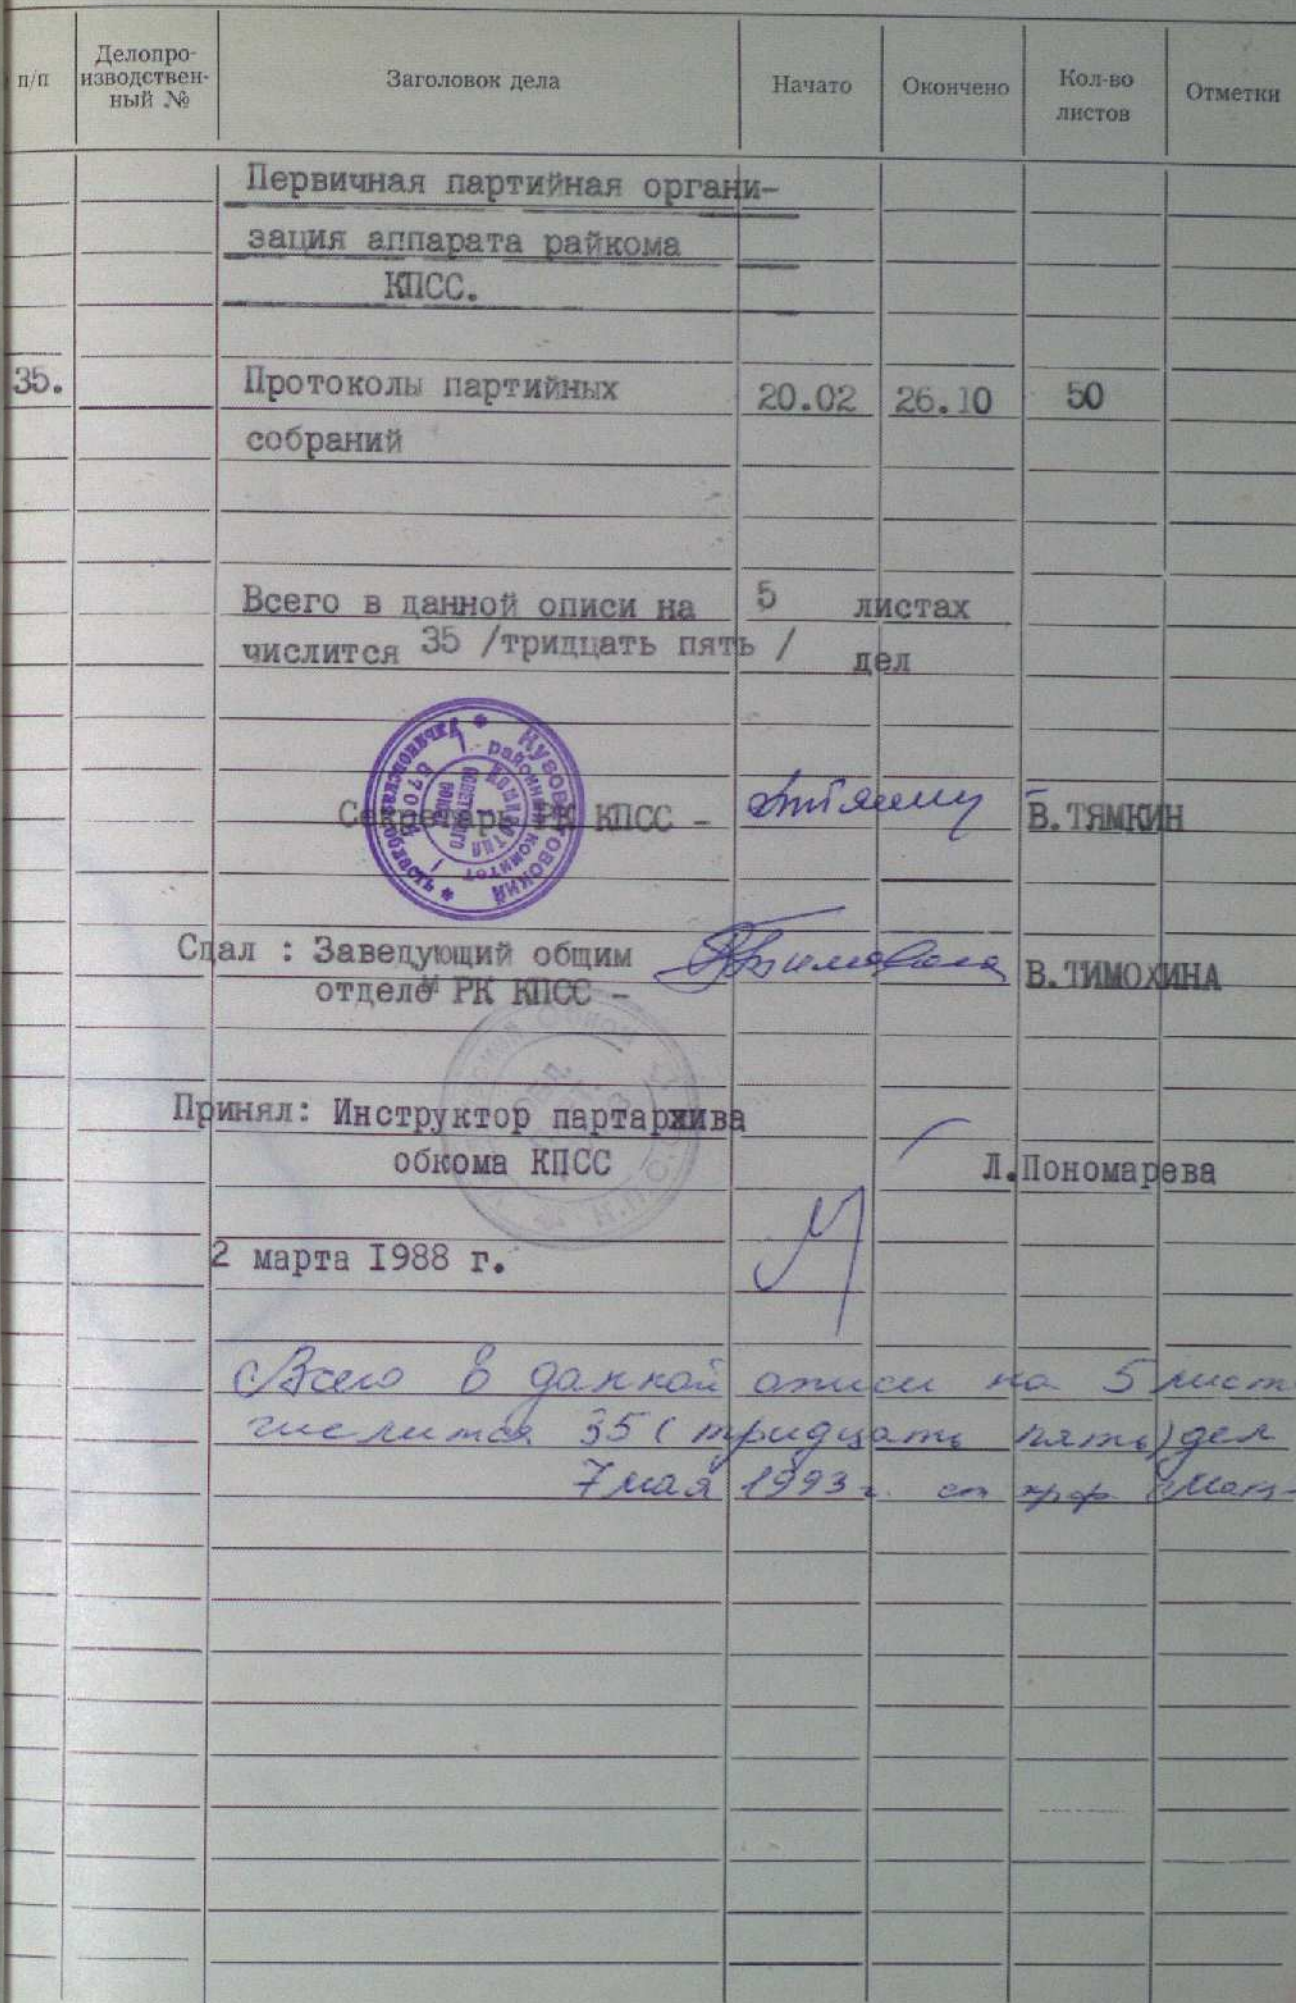 п/п
Делопро-
изводствен-
ный №
Заголовок дела
Начато
Окончено
Кол-во
листов
Отметки
Первичная партийная органи-
зация аппарата райкома
КПСС.
35. Протоколы партийных 20.02 26.10 50
собраний
Всего в данной описи на 5 листах
числится 35 /тридцать пять / дел
Секретарь РК КПСС - В.ТЯМКИН
Сдал : Заведующий общим
отделом РК КПСС - В.ТИМОХИНА
Принял: Инструктор партархива
обкома КПСС Л.Пономарева
2 марта I988 г.
Всего в данной описи на 5 лист
числится 35 (тридцать пять) дел
7 мая 1993 г.